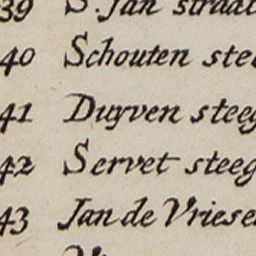 39 S. Jan straat
40 Schouten stee
41 Duyven steeg
42 Servet steeg
43 Jan de Vriese